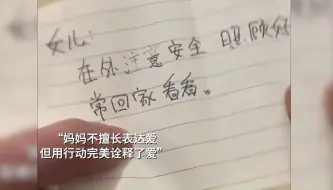 女儿：
在外注意安全 照顾好
常回家看看。
“妈妈不擅长表达爱
但用行动完美诠释了爱”